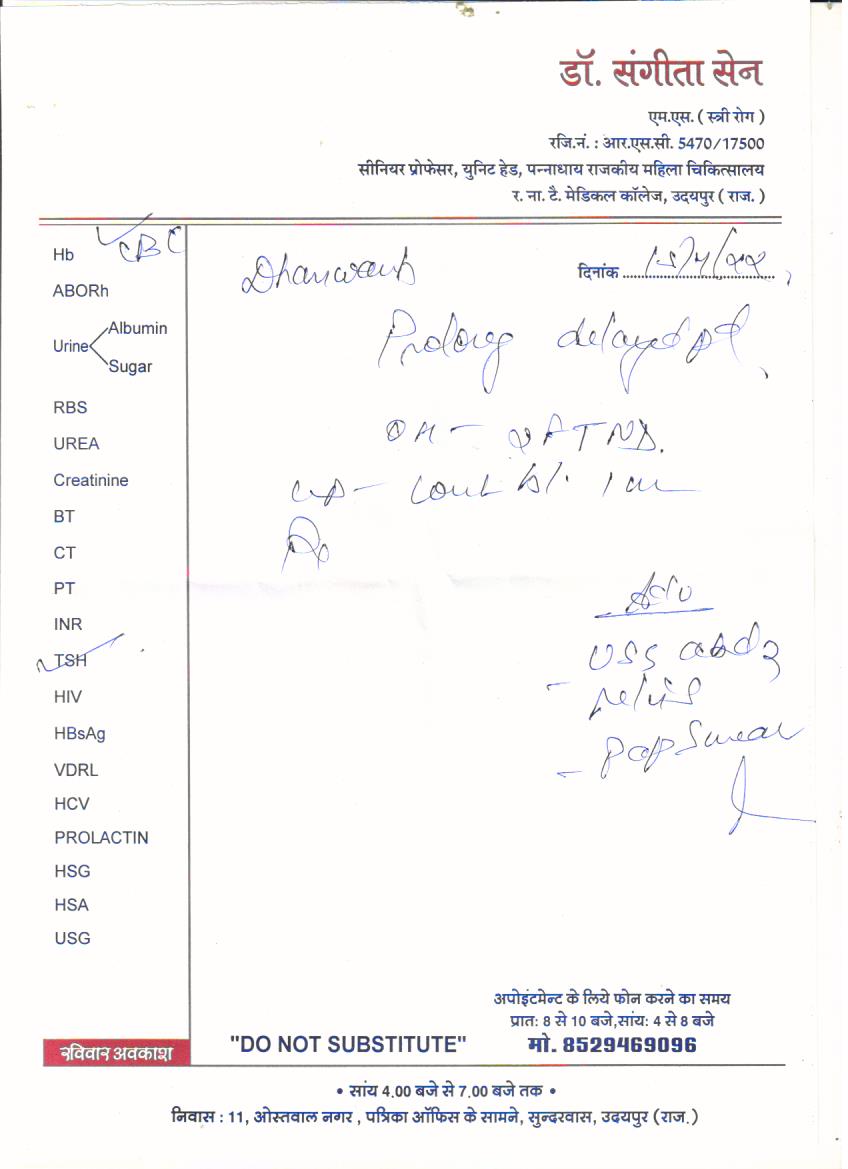 डॉ. संगीता सेन
एम.एस. ( स्त्री रोग )
रजि.नं. : आर.एस.सी. 5470/17500
सीनियर प्रोफेसर, युनिट हेड, पन्नाधाय राजकीय महिला चिकित्सालय
र. ना. टै. मेडिकल कॉलेज, उदयपुर ( राज. )
Hb CBC
दिनांक
ABORh
Urine Albumin
Sugar
Prolong delayed
RBS
UREA
Creatinine
BT
CT
PT
INR
TSH
HIV
HBsAg
VDRL
HCV
PROLACTIN
HSG
HSA
USG
Adv
USG abd
- pelvis
- Pap Smear
अपोइंटमेन्ट के लिये फोन करने का समय
प्रातः 8 से 10 बजे,सांयः 4 से 8 बजे
मो. 8529469096
"DO NOT SUBSTITUTE"
रविवार अवकाश
• सांय 4.00 बजे से 7.00 बजे तक •
निवास : 11, ओस्तवाल नगर , पत्रिका ऑफिस के सामने, सुन्दरवास, उदयपुर (राज.)